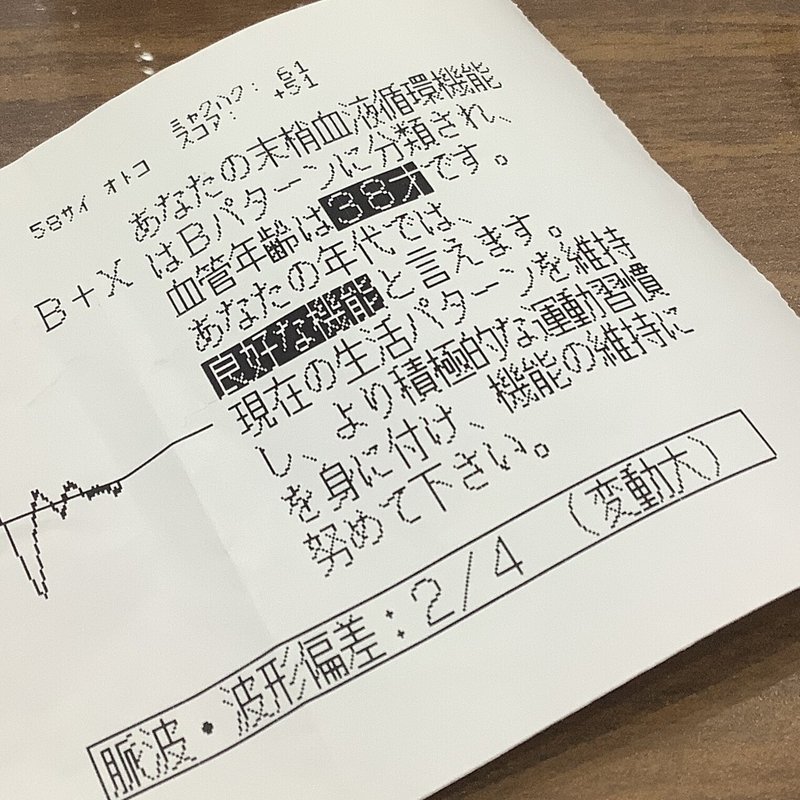 ミャクハク: 61
スコア: +51
58サイ オトコ
あなたの末梢血液循環機能
B+X はBパターンに分類され、
血管年齢は38才です。
あなたの年代では、
良好な機能と言えます。
現在の生活パターンを維持
し、より積極的な運動習慣
を身に付け、機能の維持に
努めて下さい。
脈波・波形偏差:2/4 (変動大)